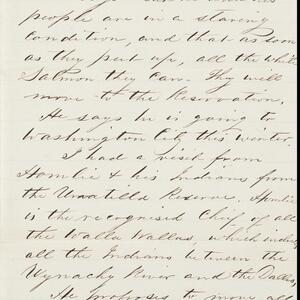 people are in a starving
condition, and that as soon
as they put up, all the white
Salmon they can. They will
move to the Reservation.
He says he is going to
Washington City this winter.
I had a visit from
Homlie & his Indians from
the Umatilla Reserve, Homlie
is the recognised Chief of all
the Walla Wallas, which includ
all the Indians between the
Wynachy River and the Dallas,
He proposes to move